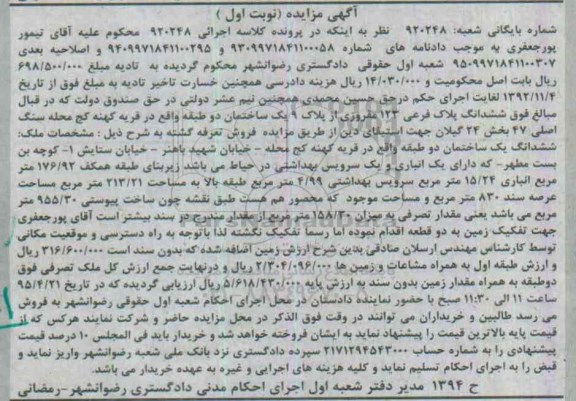 آگهی مزایده (نوبت اول )
شماره بایگانی شعبه: ۹۲۰۲۴۸ نظر به اینکه در پرونده کلاسه اجرائی ۹۲۰۲۴۸ محکوم علیه آقای تیمور
پورجعفری به موجب دادنامه های شماره ۹۳۰۹۹۷۱۸۴۱۱۰۰۰۵۸ و ۹۴۰۹۹۷۱۸۴۱۱۰۰۲۹۵ و اصلاحیه بعدی
۹۵۰۹۹۷۱۸۴۱۱۰۰۳۰۷ شعبه اول حقوقی دادگستری رضوانشهر محکوم گردیده به تادیه مبلغ ۶۹۸/۵۰۰/۰۰۰
ریال بابت اصل محکومیت و ۱۴/۰۳۰/۰۰۰ ریال هزینه دادرسی همچنین خسارت تاخیر تادیه به مبلغ فوق از تاریخ
۱۳۹۲/۱۱/۴ لغایت اجرای حکم درحق حسین محمدی همچنین نیم عشر دولتی در حق صندوق دولت که در قبال
مبالغ فوق ششدانگ پلاک فرعی ۱۲۲ مفروزی از پلاک ۹ یک ساختمان دو طبقه واقع در قریه کهنه کج محله سنگ
اصلی ۴۷ بخش ۲۴ گیلان جهت استیفای دین از طریق مزایده فروش تعرفه گشته به شرح ذیل : مشخصات ملک:
ششدانگ یک ساختمان دو طبقه واقع در قریه کهنه کج محله – خیابان شهید باهنر – خیابان ستایش ۱- کوچه بن
بست مطهر- که دارای یک انباری و یک سرویس بهداشتی در حیاط می باشد زیربنای طبقه همکف ۱۷۶/۹۲ متر
مربع انباری ۱۵/۲۴ متر مربع سرویس بهداشتی ۴/۹۹ متر مربع طبقه بالا به مساحت ۲۱۳/۲۱ متر مربع مساحت
عرصه سند ۸۳۰ متر مربع و مساحت موجود که محصور هم هست طبق نقشه چون ساخت پیوستی ۹۵۵/۳۰ متر
مربع می باشد یعنی مقدار تصرفی به میزان ۱۵۸/۳۰ متر مربع از مقدار مندرج در سند بیشتر است آقای پورجعفری
جهت تفکیک زمین به دو قطعه اقدام نموده اما رسما تفکیک نگشته لذا باتوجه به راه دسترسی و موقعیت مکانی
توسط کارشناس مهندس ارسلان صادقی بدین شرح ارزش زمین اضافه شده که بدون سند است ۳۱۶/۶۰۰/۰۰۰ ریال
و ارزش طبقه اول به همراه مشاعات و زمین ها ۲/۳۰۴/۰۹۶/۰۰۰ ریال و درنهایت جمع ارزش کل ملک تصرفی فوق
دوطبقه به همراه مقدار زمین بدون سند به ارزش پایه ۵/۶۱۸/۴۳۰/۰۰۰ ریال ارزیابی گردیده که در تاریخ ۹۵/۴/۲۱
ساعت ۱۱ الی ۱۱:۳۰ صبح با حضور نماینده دادستان در محل اجرای احکام شعبه اول حقوقی رضوانشهر به فروش
می رسد طالبین و خریداران می توانند در وقت فوق الذکر در محل مزایده حاضر و شرکت نمایند هرکس که از
قیمت پایه بالاترین قیمت را پیشنهاد نماید به ایشان فروخته خواهد شد و خریدار باید فی المجلس ۱۰ درصد قیمت
پیشنهادی را به شماره حساب ۲۱۷۱۲۹۴۵۴۳۰۰۰ سپرده دادگستری نزد بانک ملی شعبه رضوانشهر واریز نماید و
قبض را به اجرای احکام تسلیم نماید و کلیه هزینه های اجرایی و غیره به عهده خریدار می باشد.
ح ۱۳۹۴ مدیر دفتر شعبه اول اجرای احکام مدنی دادگستری رضوانشهر-رمضانی